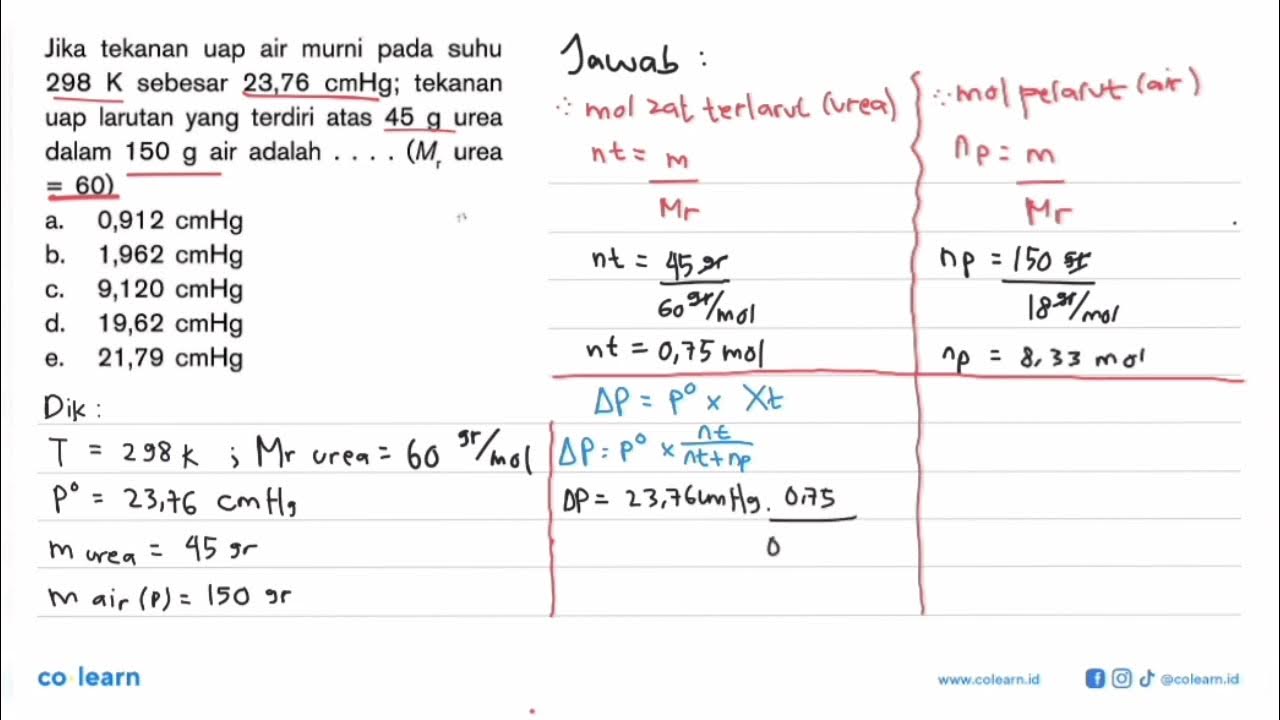 Jika tekanan uap air murni pada suhu
298 K sebesar 23,76 cmHg; tekanan
uap larutan yang terdiri atas 45 g urea
dalam 150 g air adalah . . . . (Mr urea
= 60)
a. 0,912 cmHg
b. 1,962 cmHg
c. 9,120 cmHg
d. 19,62 cmHg
e. 21,79 cmHg
Dik :
T = 298 K ; Mr urea = 60 gr/mol
P° = 23,76 cmHg
m urea = 45 gr
m air (P) = 150 gr
Jawab :
∴ mol zat terlarut (urea)
nt = m
Mr
nt = 45 gr
60 gr/mol
nt = 0,75 mol
∴ mol pelarut (air)
np = m
Mr
np = 150 gr
18 gr/mol
np = 8,33 mol
ΔP = P° × Xt
ΔP = P° × nt
nt + np
ΔP = 23,76 cmHg . 0,75
0
co learn
www.colearn.id
@colearn.id